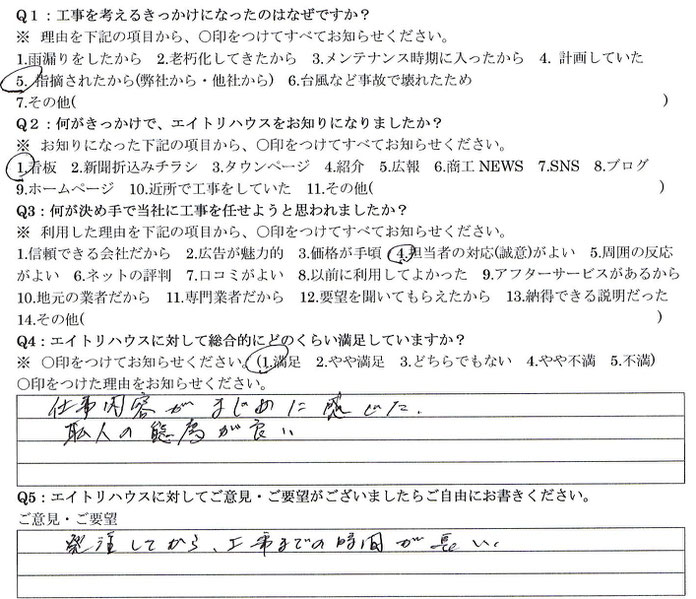 Q1：工事を考えるきっかけになったのはなぜですか？
※ 理由を下記の項目から、〇印をつけてすべてお知らせください。
1.雨漏りをしたから 2.老朽化してきたから 3.メンテナンス時期に入ったから 4. 計画していた
5. 指摘されたから(弊社から・他社から) 6.台風など事故で壊れたため
7.その他( )
Q2：何がきっかけで、エイトリハウスをお知りになりましたか？
※ お知りになった下記の項目から、〇印をつけてすべてお知らせください。
1.看板 2.新聞折込みチラシ 3.タウンページ 4.紹介 5.広報 6.商工NEWS 7.SNS 8.ブログ
9.ホームページ 10.近所で工事をしていた 11.その他( )
Q3：何が決め手で当社に工事を任せようと思われましたか？
※ 利用した理由を下記の項目から、〇印をつけてすべてお知らせください。
1.信頼できる会社だから 2.広告が魅力的 3.価格が手頃 4.担当者の対応(誠意)がよい 5.周囲の反応
がよい 6.ネットの評判 7.口コミがよい 8.以前に利用してよかった 9.アフターサービスがあるから
10.地元の業者だから 11.専門業者だから 12.要望を聞いてもらえたから 13.納得できる説明だった
14.その他( )
Q4：エイトリハウスに対して総合的にどのくらい満足していますか？
※ 〇印をつけてお知らせください。(1.満足 2.やや満足 3.どちらでもない 4.やや不満 5.不満)
〇印をつけた理由をお知らせください。
仕事内容がまじめに感じた.
職人の態度が良い
Q5：エイトリハウスに対してご意見・ご要望がございましたらご自由にお書きください。
ご意見・ご要望
発注してから、工事までの時間が長い.